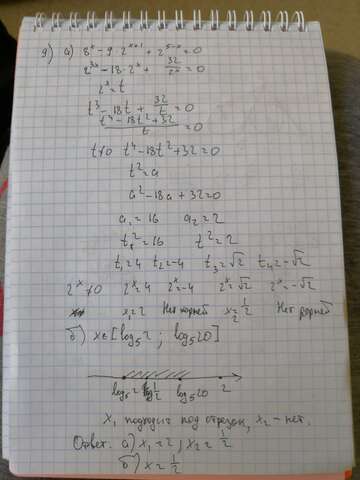 9) а) 8^x - 9·2^(x+1) + 2^(5-x) = 0
2^(3x) - 18·2^x + 32/2^x = 0
2^x = t
t³ - 18t + 32/t = 0
(t⁴ - 18t² + 32)/t = 0
t≠0 t⁴ - 18t² + 32 = 0
t² = a
a² - 18a + 32 = 0
a₁ = 16 a₂ = 2
t² = 16 t² = 2
t₁ = 4 t₂ = -4 t₃ = √2 t₄ = -√2
2^x ≠ 0 2^x = 4 2^x = -4 2^x = √2 2^x = -√2
x₁ = 2 Нет корней x₂ = 1/2 Нет корней
б) x ∈ [log₅2 ; log₅20]
log₅2 1/2 log₅20 2
x₁ подходит под отрезок, x₂ - нет.
Ответ: а) x₁ = 2, x₂ = 1/2
б) x = 1/2